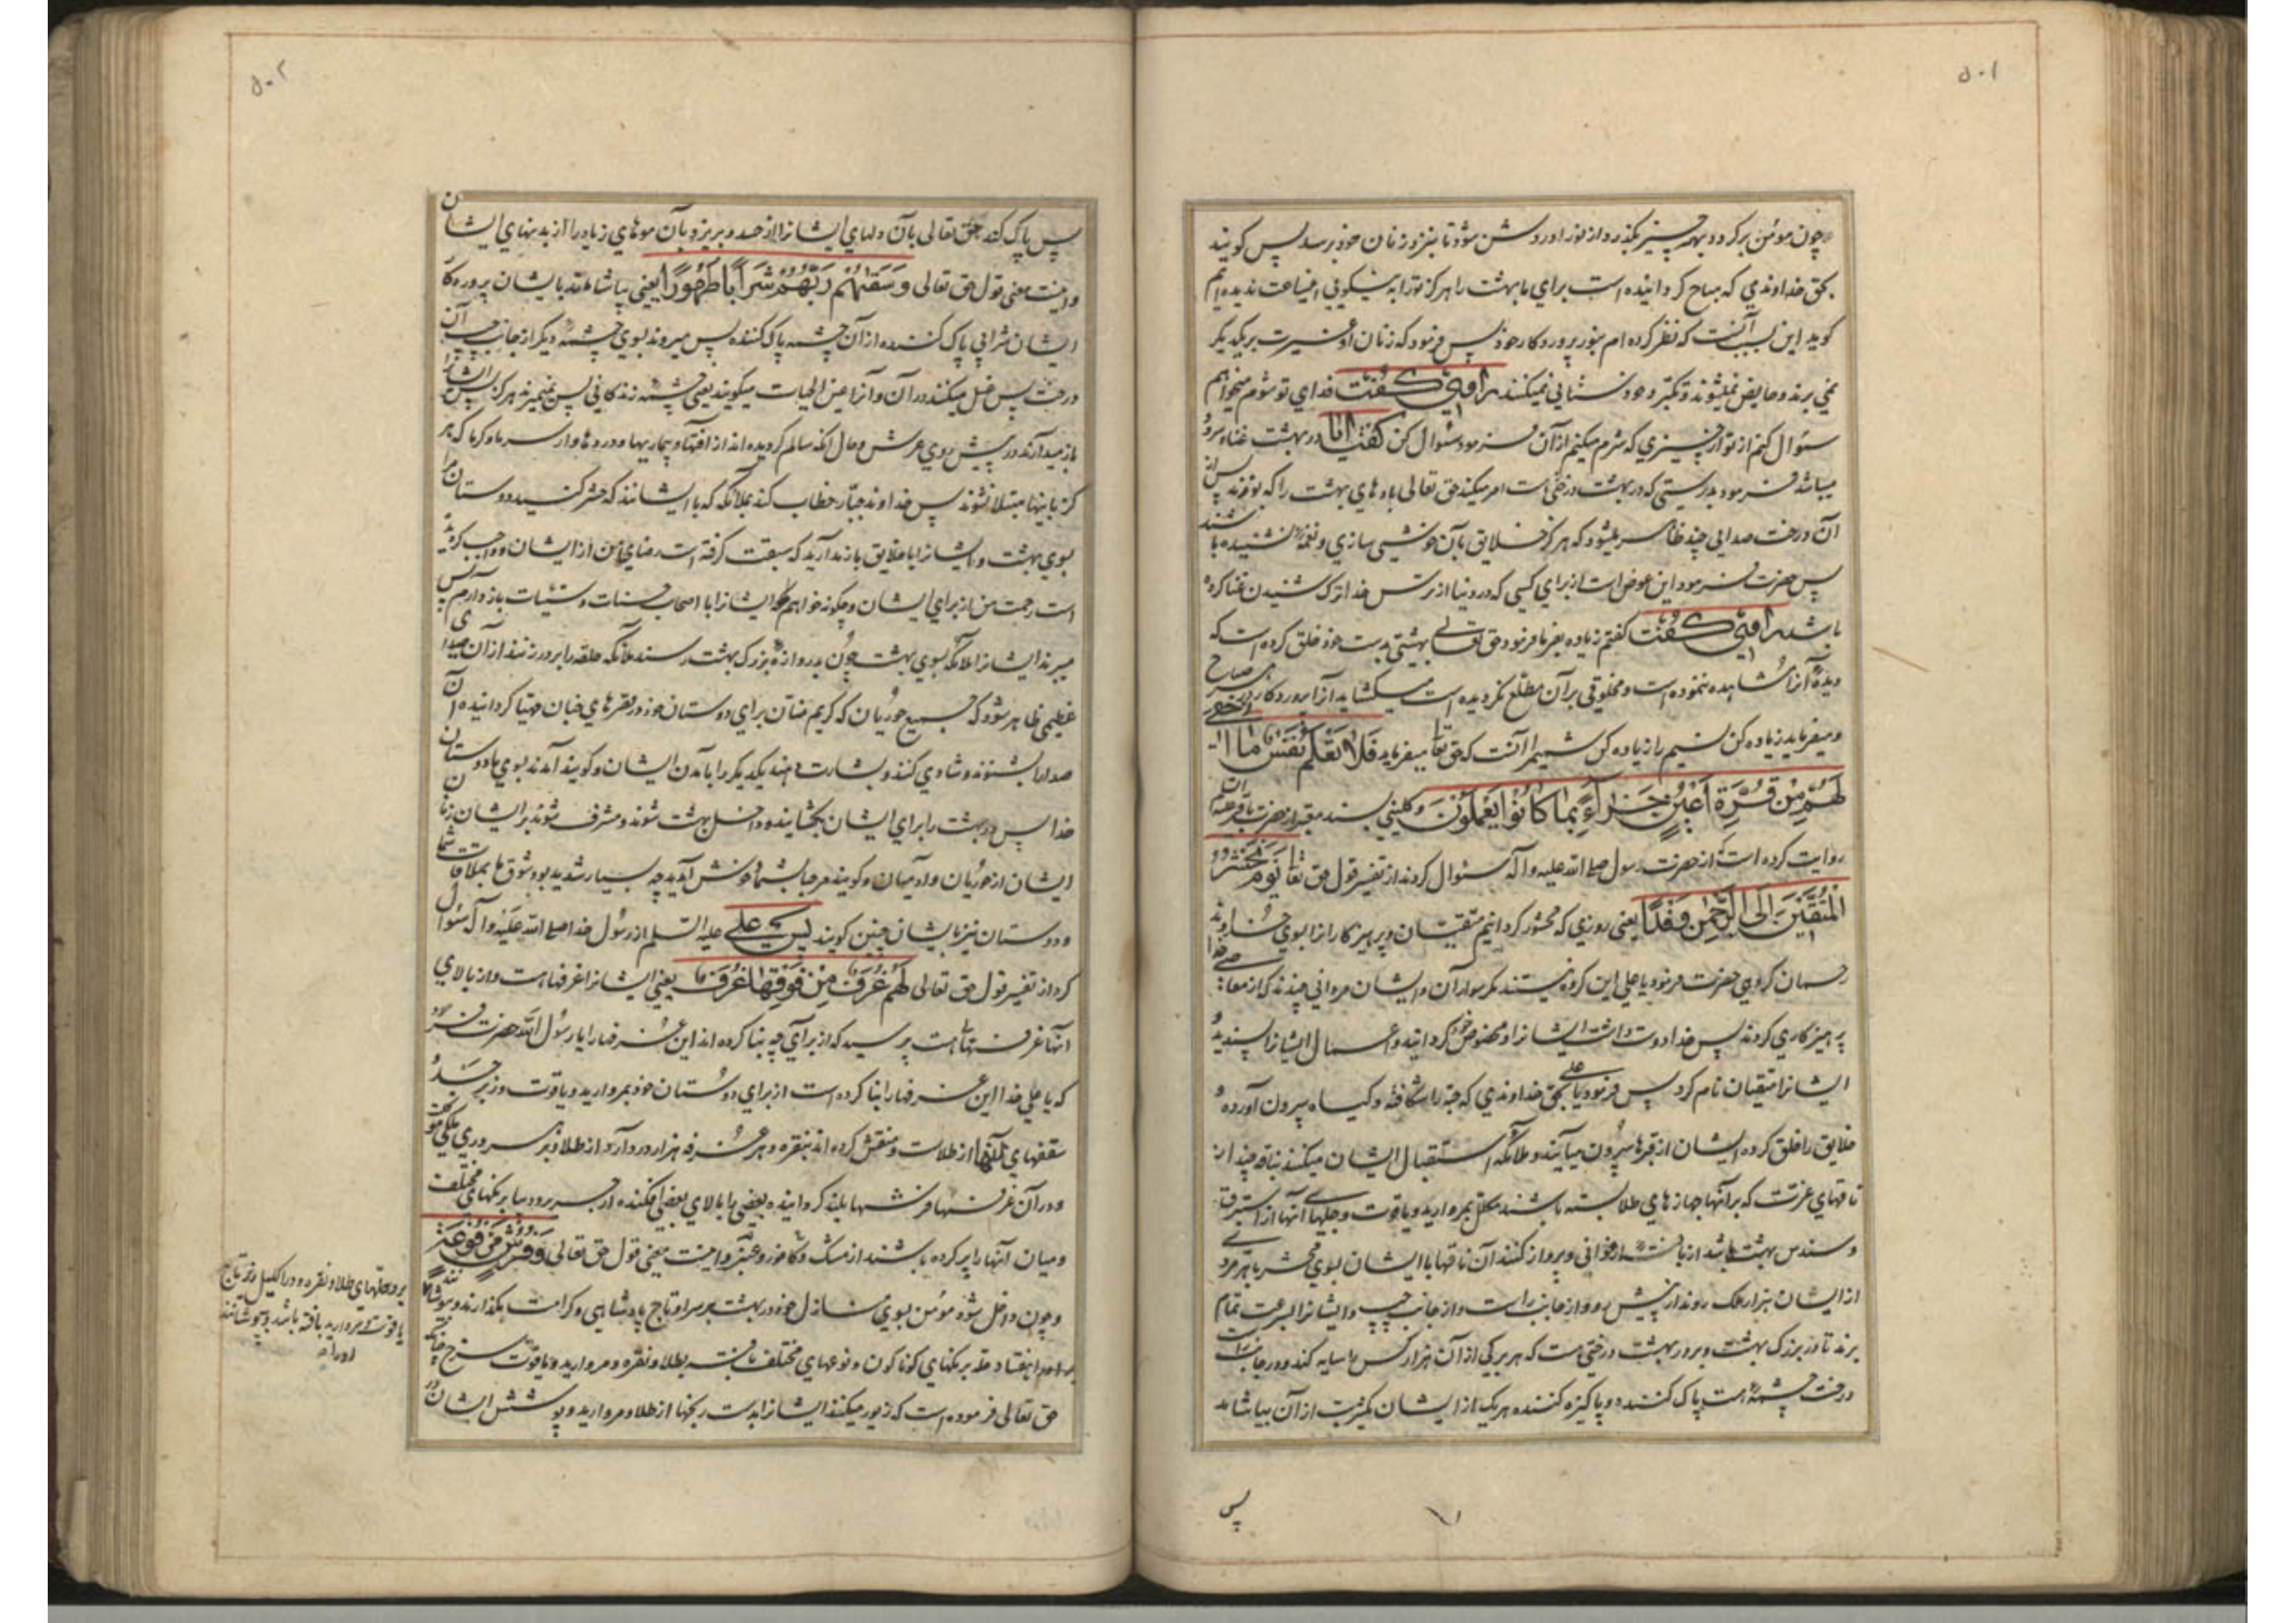 ۵۰۱
چون مومن برکردد بهمه چیز بگذرد و از نور او روشن شود تا بنزد زنان خود برسد پس کویند
بحق خداوندی که مباح کردانیده است برای ما بهشت را هرکز تو را به نیکویی این ساعت ندیده ایم
کوید این بسبب آنست که نظر کرده ام بنور پروردکار خود پس فرمود که زنان او غیرت بریکدیکر
نمی برند و حایض نمیشوند و تکبر و خودستایی نمیکنند راوی کفت فدای تو شوم میخواهم
سئوال کنم از تو از چیزی که شرم میکنم از آن فرمود سئوال کن کفت ایا در بهشت غنا و سرود
میباشد فرمود بدرستی که در بهشت درختی هست امر میکند حق تعالی بادهای بهشت را که بوزند پس از
آن درخت صدایی چند ظاهر میشود که هرکز خلایق بآن خوشی سازی و نغمه نشنیده باشند
پس حضرت فرمود این عوض است از برای کسی که در دنیا از ترس خدا ترک شنیدن غنا کرده
باشد راوی کفت کفتم زیاده بفرما فرمود حق تعالی بهشتی بدست خود خلق کرده است که
دیدهٔ آنرا مشاهده ننموده است و مخلوقی بر آن مطلع نکردیده است میکشاید آنرا پروردکار هر صباح
و میفرماید زیاده کن نسیم را زیاده کن شمیم را آنست که حق تعا میفرماید فَلا تَعْلَمُ نَفْسٌ ما اُخْفِیَ
لَهُمْ مِنْ قُرَّةِ اَعْیُنٍ جَزاءً بِما کانُوا یَعْمَلُونَ و کلینی بسند معتبر از حضرت باقر علیه
روایت کرده است که از حضرت رسول صلی الله علیه و آله سئوال کردند از تفسیر قول حق تعا یَوْمَ نَحْشُرُ
الْمُتَّقینَ اِلَی الرَّحْمنِ وَفْدًا یعنی روزی که محشور کردانیم متقیان و پرهیزکاران را بسوی خداوند
رحمان کروهی حضرت فرمود یا علی این کروه نیستند مکر سواران و ایشان مردانی چندند که از معاصی خدا
پرهیزکاری کردند پس خدا دوست داشت ایشان را و مخصوص خود کردانید و اعمال ایشان را پسندید و
ایشان را متقیان نام کرد پس فرمود یا علی بحق خداوندی که حبه را شکافته و کیاه بیرون آورده و
خلایق را خلق کرده ایشان از قبرها بیرون میآیند و ملائکه استقبال ایشان میکنند بناقه چند از
ناقهای عزت که بر آنها جهازهای طلا بسته باشند مکلل بمروارید و یاقوت و جلهای آنها از استبرق
و سندس بهشت باشد از بافته ارغوانی و پرواز کنند آن ناقها با ایشان بسوی محشر با هر مردی
از ایشان هزار ملک روند از پیش رو و از جانب راست و از جانب چپ و ایشان را بسرعت تمام
برند تا در بزرک بهشت و بر در بهشت درختی هست که هر برکی از آن هزار کس را سایه کند و در جانب راست
درخت چشمهٔ هست پاک کننده و پاکیزه کننده هریک از ایشان یکشربت از آن بیاشامد
پس
۵۰۲
پس پاک کند حق تعالی بآن دلهای ایشان را از حسد و بریزد بآن موهای زیاد را از بدنهای ایشان
و اینست معنی قول حق تعالی وَ سَقیهُمْ رَبُّهُمْ شَرابًا طَهُورًا یعنی بیاشاماند بایشان پروردکار
ایشان شرابی پاک کننده از آن چشمه پاک کننده پس میروند بسوی چشمهٔ دیکر از جانب چپ آن
درخت پس غسل میکنند در آن و آنرا عین الحیات میکویند یعنی چشمه زندکانی پس نمیمیرند هرکز پس ایشان را
باز میدارند در پیش روی عرش و حال آنکه سالم کردیده اند از آفتها و بیماریها و دردها و از سرما و کرما که هر
کز باینها مبتلا نشوند پس خداوند جبّار خطاب کند بملائکه که با ایشانند که حشر کنید دوستان مرا
بسوی بهشت و ایشان را با خلایق باز مدارید که سبقت کرفته است رضای من از ایشان و واجب کردیده
است رحمت من از برای ایشان و چکونه خواهم که ایشان را با اصحاب حسنات و سیّئات باز دارم پس
میبرند ایشان را ملائکه بسوی بهشت چون بدروازه بزرک بهشت رسند ملائکه حلقه را بر در زنند از آن صدای
عظیمی ظاهر شود که جمیع حوریان که کریم منّان برای دوستان خود در قصرهای جنان مهیا کردانیده آن
صدا را بشنوند و شادی کنند و بشارت دهند یکدیکر را بآمدن ایشان و کویند آمدند بسوی ما دوستان
خدا پس در بهشت را برای ایشان بکشایند و داخل بهشت شوند و مشرف شوند بر ایشان زنان
ایشان از حوریان و آدمیان و کویند مرحبا بشما خوش آمدید چه بسیار شدید بود شوق ما بملاقات شما
و دوستان نیز بایشان چنین کویند پس علی علیه السلم از رسول خدا صلی الله علیه و آله سئوال
کرد از تفسیر قول حق تعالی لَهُمْ غُرَفٌ مِنْ فَوْقِها غُرَفٌ یعنی ایشان را غرفها هست و از بالای
آنها غرفها هست پرسید که از برای چه بنا کرده اند این غرفها را یا رسول الله حضرت فرمود
که یا علی خدا این غرفها را بنا کرده است از برای دوستان خود بمروارید و یاقوت و زبرجد و
سقفهای آنها از طلاست و منقش کرده اند بنقره و هر غرفه هزار در دارد از طلا و بر هر دری ملکی موکلست
و در آن غرفها فرشها بلند کردانیده بعضی را بالای بعضی افکنده از حریر و دیبا برنکهای مختلف
و میان آنها را پر کرده باشند از مشک و کافور و عنبر و اینست معنی قول حق تعالی وَ فُرُشٍ مَرْفُوعَةٍ
و چون داخل شود مومن بسوی منازل خود در بهشت بر سر او تاج پادشاهی و کرامت بکذارند و بپوشانند
هفتاد حله برنکهای کوناکون و نوعهای مختلف بافته بطلا و نقره و مروارید و یاقوت سرخ چنانکه
حق تعالی فرموده است که زیور میکنند ایشان را بدست رنجها از طلا و مروارید و پوشش ایشان در
برو حلهای طلا و نقره و در اکلیل زیر تاج
یاقوت و مروارید بافته باشد و بپوشانند
او را